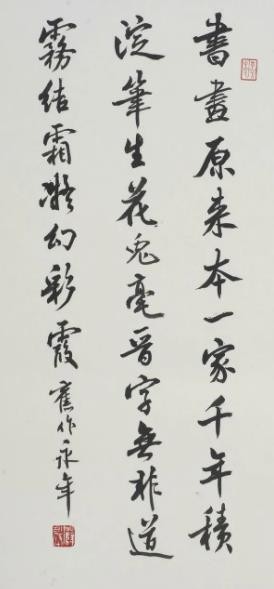 書畫原来本一家千年積
淀筆生花兔毫晉字無非道
霧结霜凝幻彩霞 舊作永年